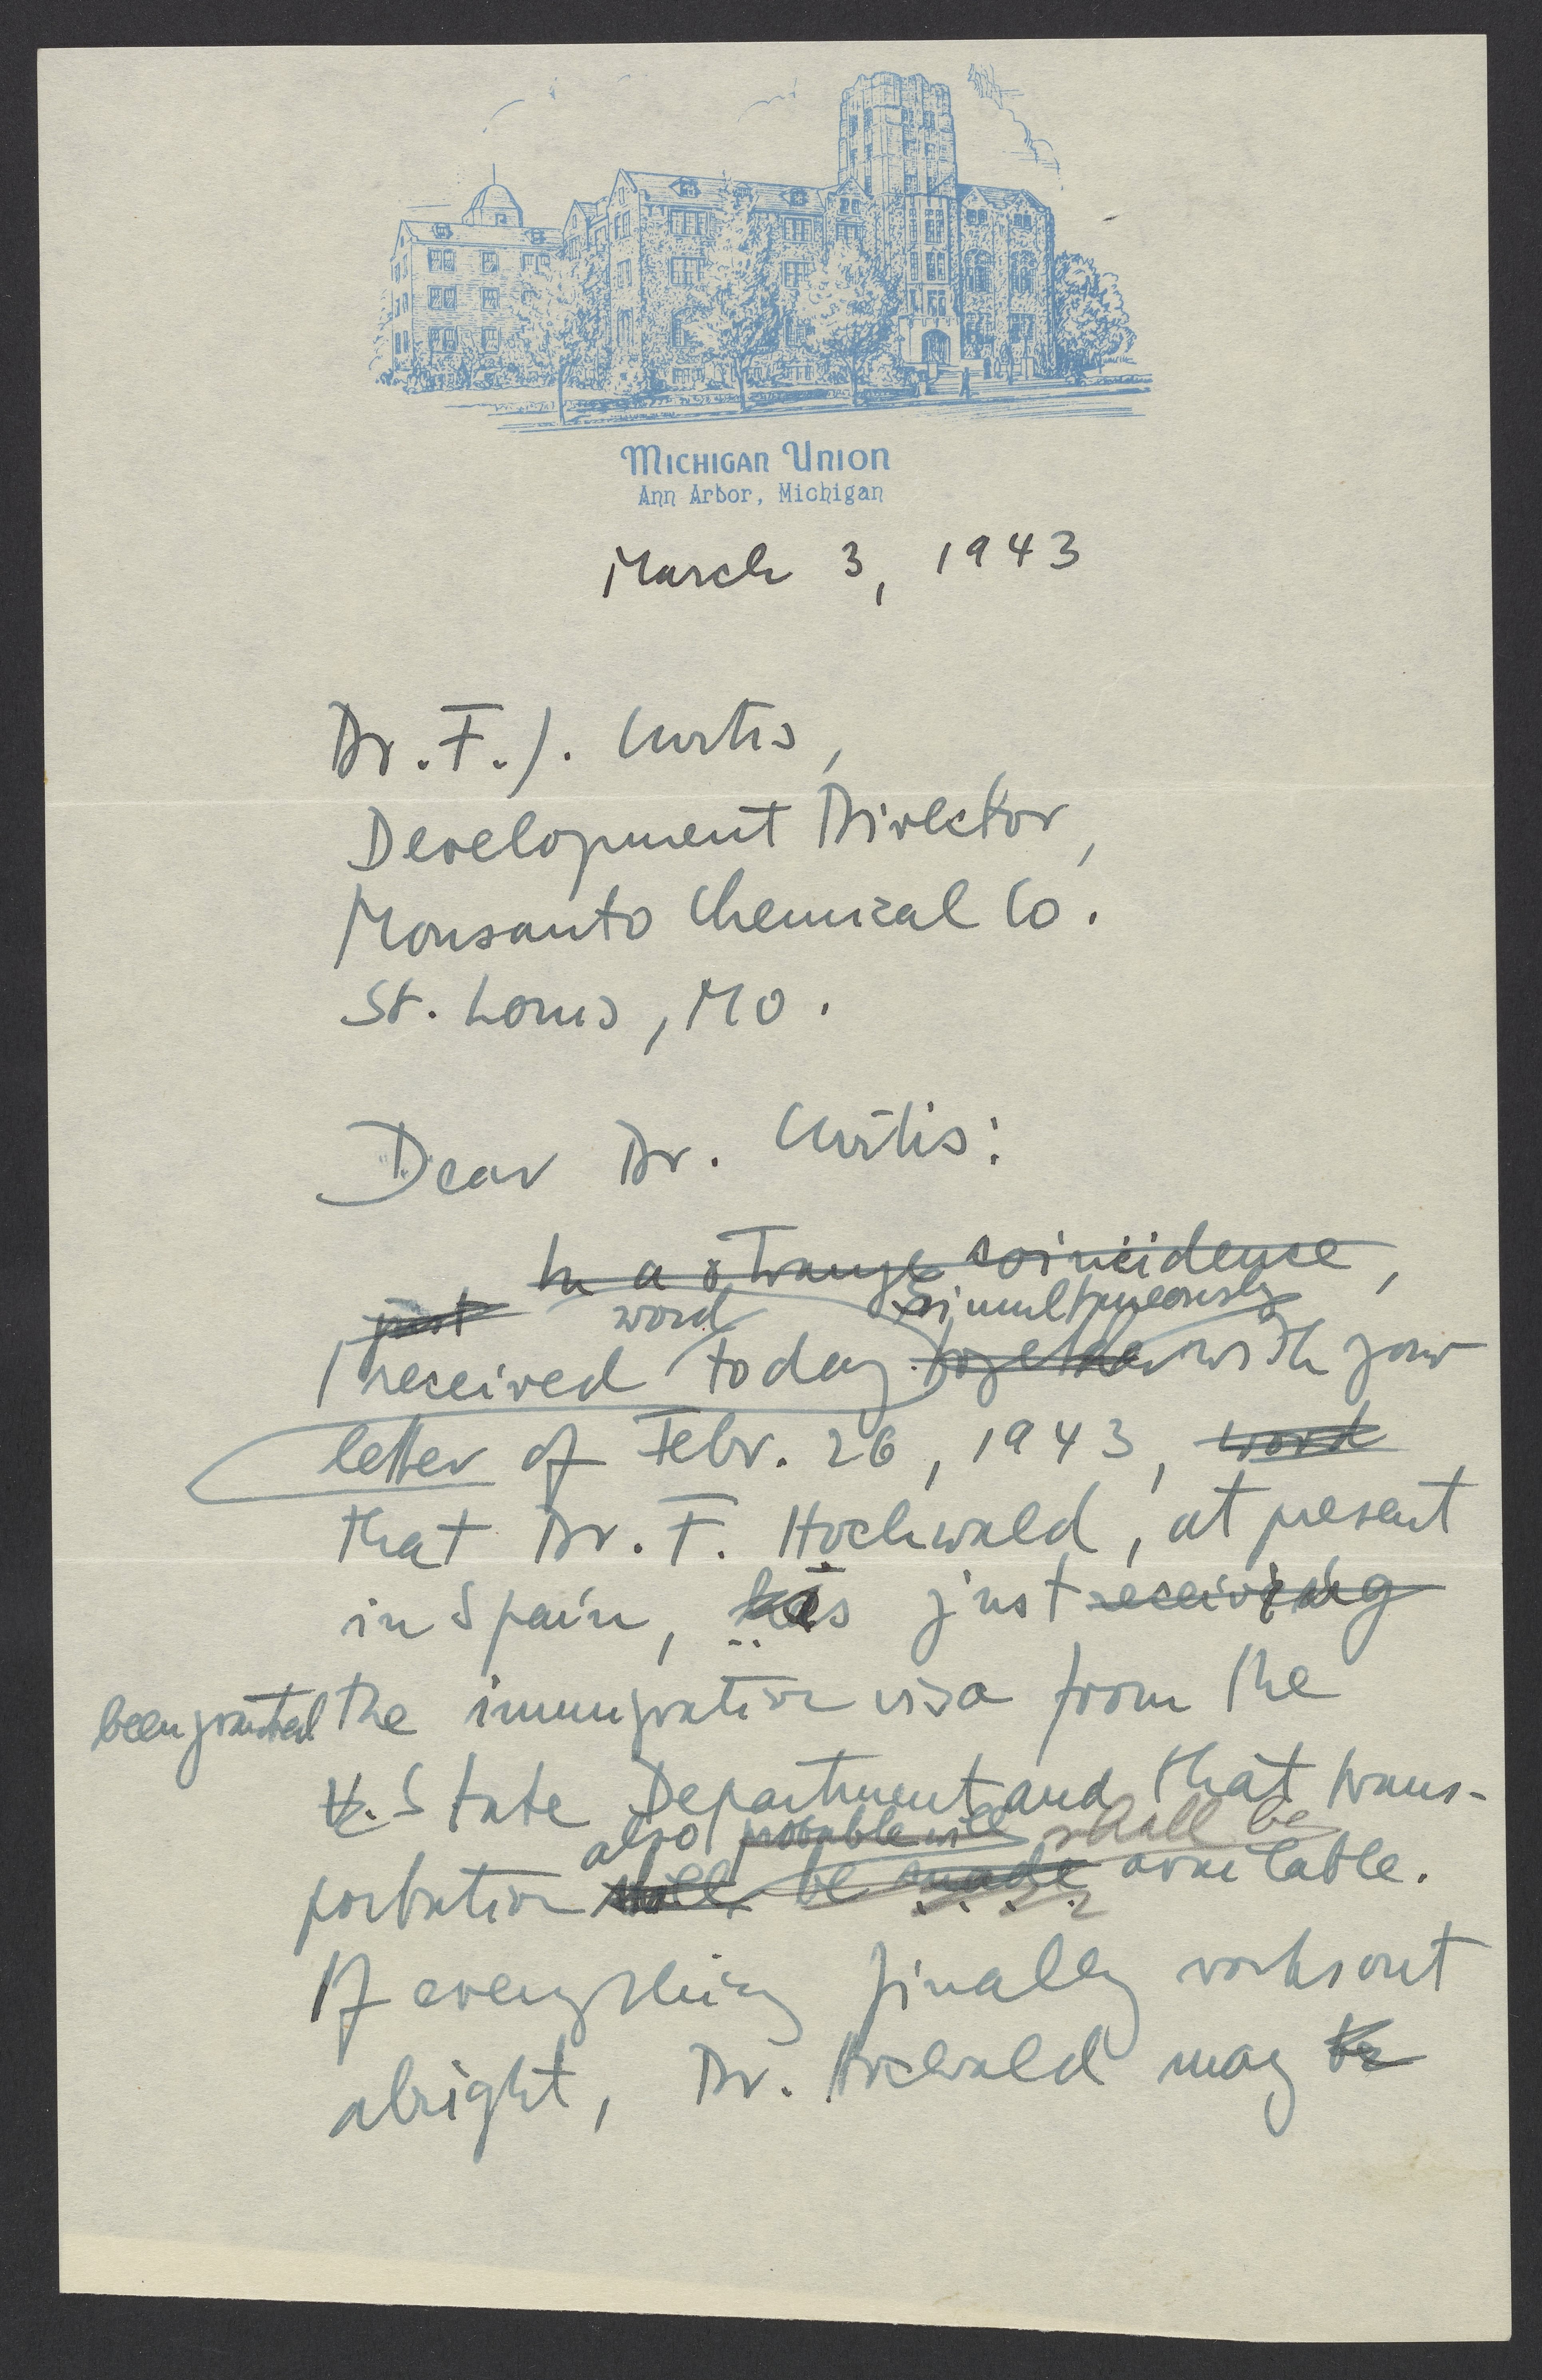 Michigan Union
Ann Arbor, Michigan
March 3, 1943
Dr. F. J. Curtis,
Development Director,
Monsanto Chemical Co.
St. Louis, Mo.
Dear Dr. Curtis:
In a strange coincidence,
just word Simultaneously
I received today together with your
letter of Febr. 26, 1943, word
that Dr. F. Hochwald, at present
in Spain, has just receiving
been granted the immigration visa from the
U. State Department and that trans-
also probable will shall be
portation will be made available.
If everything finally works out
alright, Dr. Hochwald may be